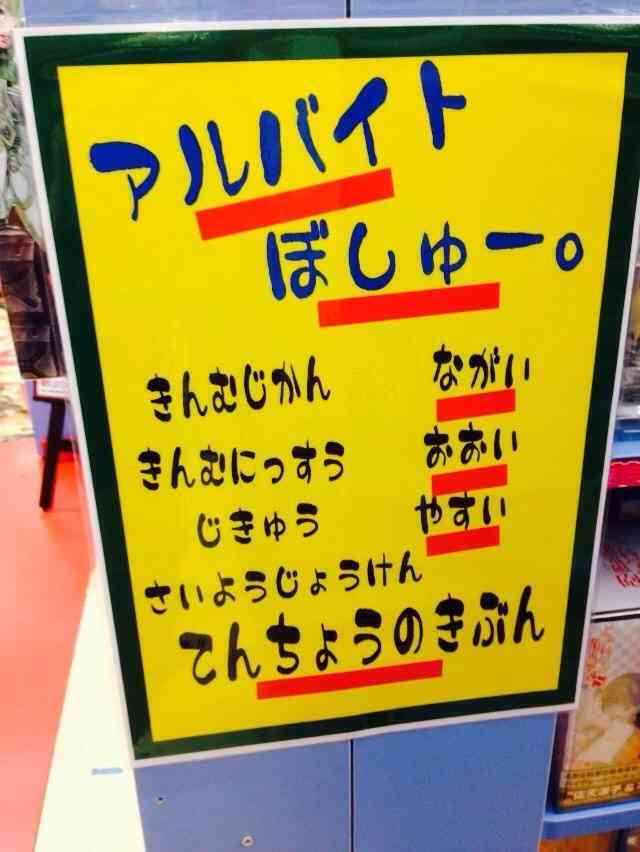 アルバイト
ぼしゅー。
きんむじかん ながい
きんむにっすう おおい
じきゅう やすい
さいようじょうけん
てんちょうのきぶん